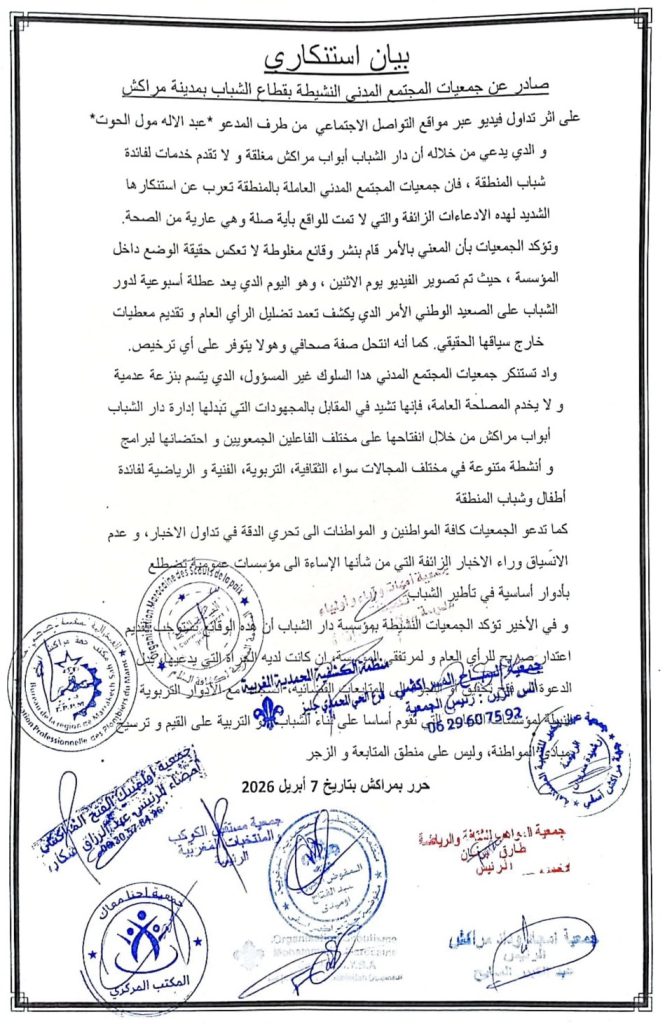 بيان استنكاري
صادر عن جمعيات المجتمع المدني النشيطة بقطاع الشباب بمدينة مراكش
على اثر تداول فيديو عبر مواقع التواصل الاجتماعي من طرف المدعو *عبد الاله مول الحوت*
و الدي يدعي من خلاله أن دار الشباب أبواب مراكش مغلقة و لا تقدم خدمات لفائدة
شباب المنطقة ، فان جمعيات المجتمع المدني العاملة بالمنطقة تعرب عن استنكارها
الشديد لهده الادعاءات الزائفة والتي لا تمت للواقع بأية صلة وهي عارية من الصحة.
وتؤكد الجمعيات بأن المعني بالأمر قام بنشر وقائع مغلوطة لا تعكس حقيقة الوضع داخل
المؤسسة ، حيث تم تصوير الفيديو يوم الاثنين ، وهو اليوم الدي يعد عطلة أسبوعية لدور
الشباب على الصعيد الوطني الأمر الدي يكشف تعمد تضليل الرأي العام و تقديم معطيات
خارج سياقها الحقيقي. كما أنه انتحل صفة صحافي وهولا يتوفر على أي ترخيص.
واد تستنكر جمعيات المجتمع المدني هدا السلوك غير المسؤول، الدي يتسم بنزعة عدمية
و لا يخدم المصلحة العامة، فإنها تشيد في المقابل بالمجهودات التي تبدلها إدارة دار الشباب
أبواب مراكش من خلال انفتاحها على مختلف الفاعلين الجمعويين و احتضانها لبرامج
و أنشطة متنوعة في مختلف المجالات سواء الثقافية، التربوية، الفنية و الرياضية لفائدة
أطفال وشباب المنطقة
كما تدعو الجمعيات كافة المواطنين و المواطنات الى تحري الدقة في تداول الاخبار، و عدم
الانسياق وراء الاخبار الزائفة التي من شأنها الإساءة الى مؤسسات عمومية يضطلع
بأدوار أساسية في تأطير الشباب
و في الأخير تؤكد الجمعيات النشيطة بمؤسسة دار الشباب أن هده الوقائع تستوجب تقديم
اعتدار صريح للرأي العام و لمرتفقي المؤسسة، إن كانت لديه الجرأة التي يدعيها
الدعوة فتح تحقيق المتابعات القضائية، مع الأدوار التربوية
تقوم أساسا على الشباب التربية على القيم و ترسيخ
مبادئ المواطنة، وليس على منطق المتابعة و الزجر
حرر بمراكش بتاريخ 7 أبريل 2026
Organisation Marocaine des Scouts de la paix
منظمة الكشفية المحمدية المغربية
فرع الحي المحمدي جليز
جمعية المراكشي
رئيس الجمعية
06 29 60 75 92
جمعية أولمبيك الفتح المراكشي
إمضاء الرئيس عبد الرزاق
جمعية مستقبل الكوكب
و المنتخبات المغربية
الرئيس
المفوض
عبد الفتاح
جمعية المواهب للثقافة والرياضة
طارق
الرئيس
جمعية احنا معاك
المكتب المركزي
جمعية أمجاد وداد مراكش
الرئيس